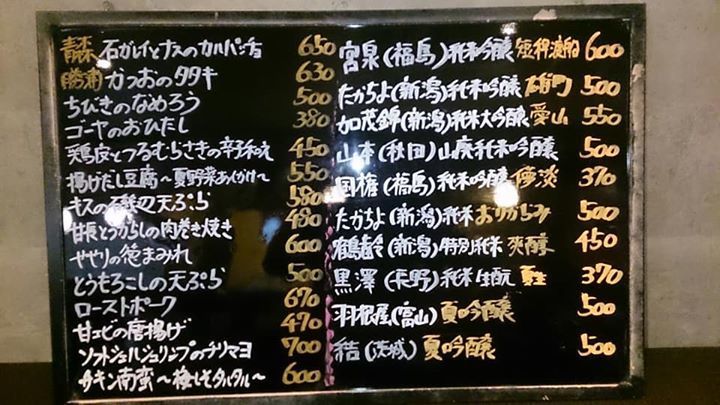 青森 石ガレイとナスのカルパッチョ 650
勝浦 かつおのタタキ 630
ちびきのなめろう 500
ゴーヤのおひたし 380
鶏皮とつるむらさきの辛子和え 450
揚げだし豆腐～夏野菜あんかけ～ 550
キスの磯辺天ぷら 580
甘長とうがらしの肉巻き焼き 480
せせりの葱まみれ 600
とうもろこしの天ぷら 500
ローストポーク 670
甘エビの唐揚げ 470
ソフトシェルシュリンプのチリマヨ 700
チキン南蛮～梅しそタルタル～ 600
宮泉(福島)純米吟醸 短稈渡船 600
たかちよ(新潟)純米吟醸 雄町 500
加茂錦(新潟)純米大吟醸 愛山 550
山本(秋田)山廃純米吟醸 500
国権(福島)純米吟醸 370
たかちよ(新潟)純米 おりがらみ 500
鶴齢(新潟)特別純米 爽醇 450
黒澤(長野)純米生酛 夏生 370
羽根屋(富山)夏吟醸 500
結(茨城)夏吟醸 500